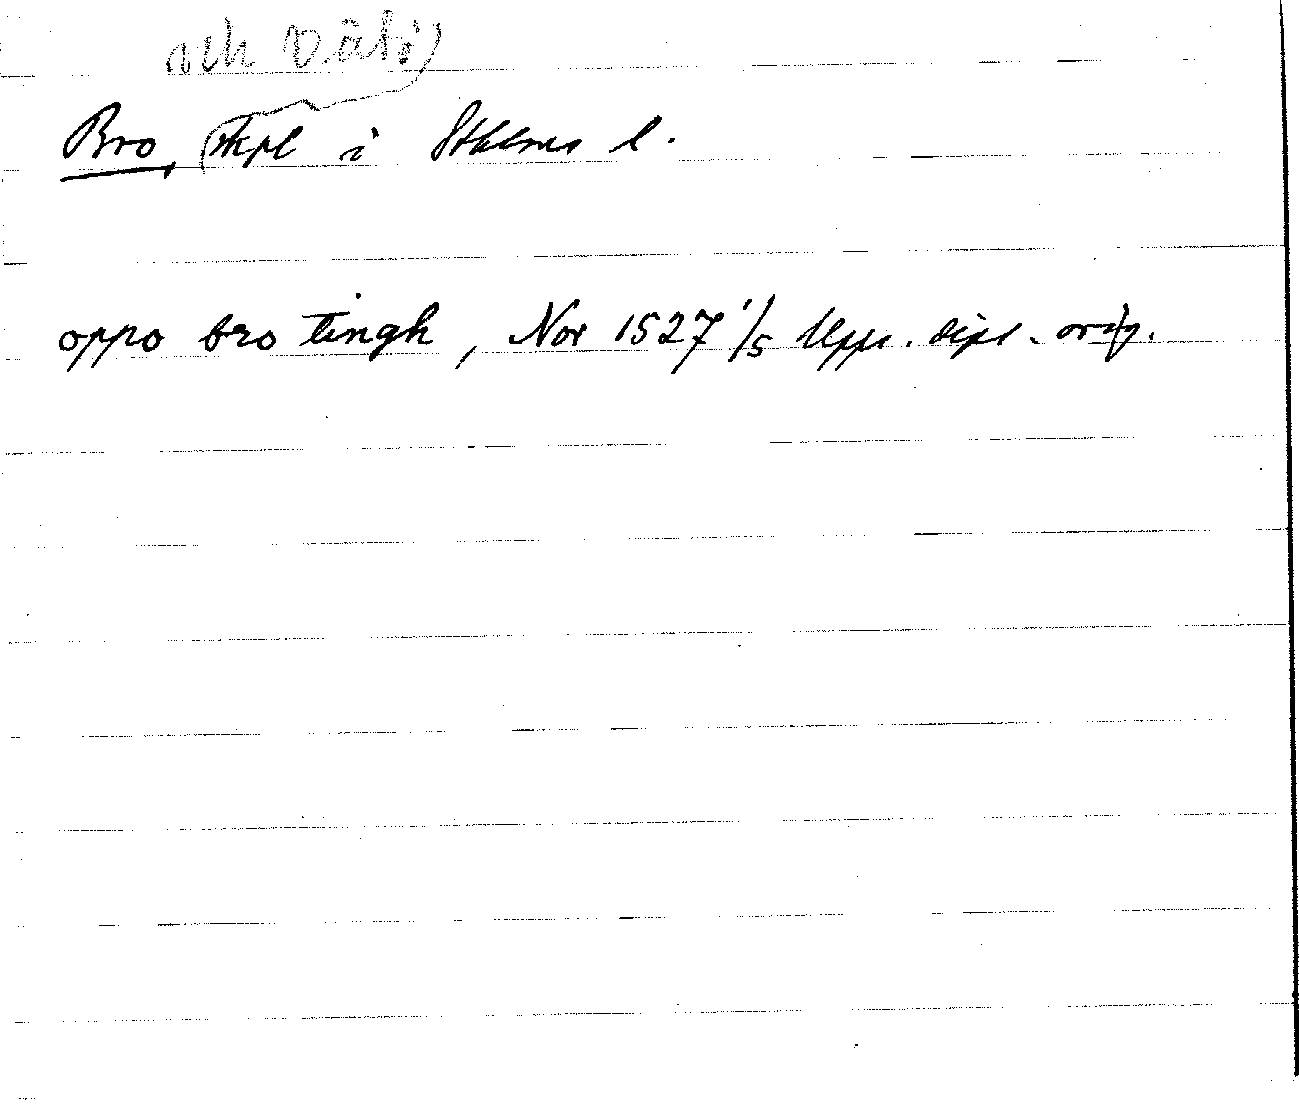 och Vätö)
Bro, (skpl i Sthlms l.
oppo bro tingh, Nor 1527 1/5 Upps. dipl. orig.